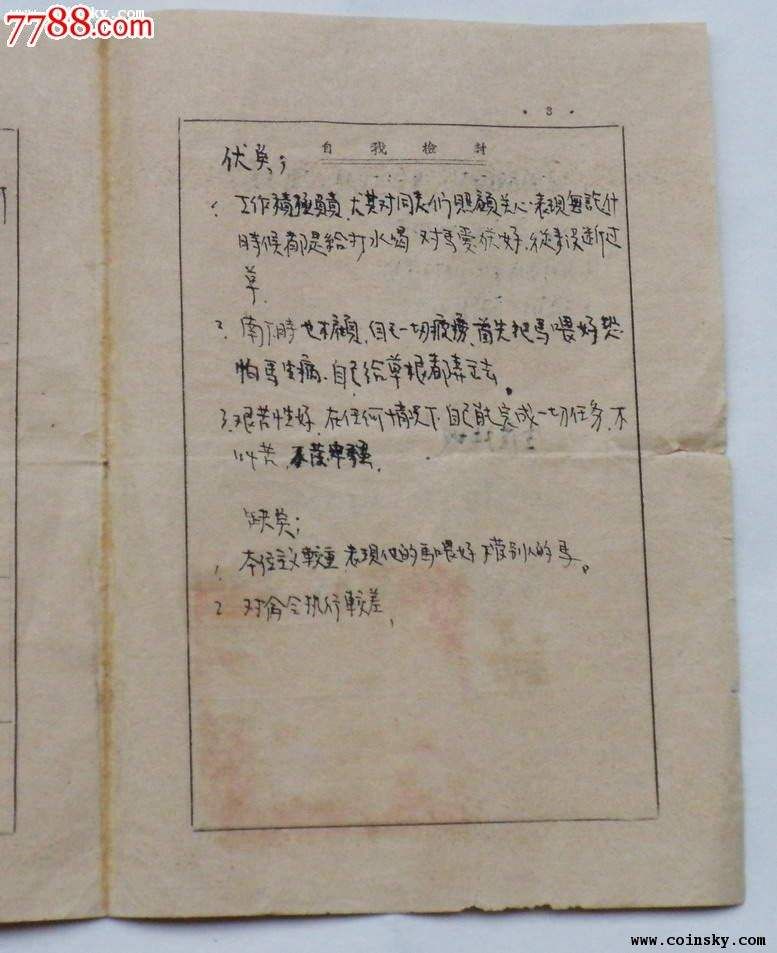 www.coinsky.com
7788.com
· 3 ·
自我检讨
伏奌；
1、工作積極負責，尤其对同志们照顧关心，表現無論什
時候都是給打水喝 对馬愛伏好，從未没断过
草
2、南下時也不顧自己一切疲勞，首先把馬喂好恐
怕馬生病、自己給草根都弄去。
3、艰苦性好，在任何情况下自己能完成一切任务，不
叫苦，
缺奌；
1、本位主义較重 表現他的馬喂好 不管别人的馬。
2、对命令执行較差，
www.coinsky.com